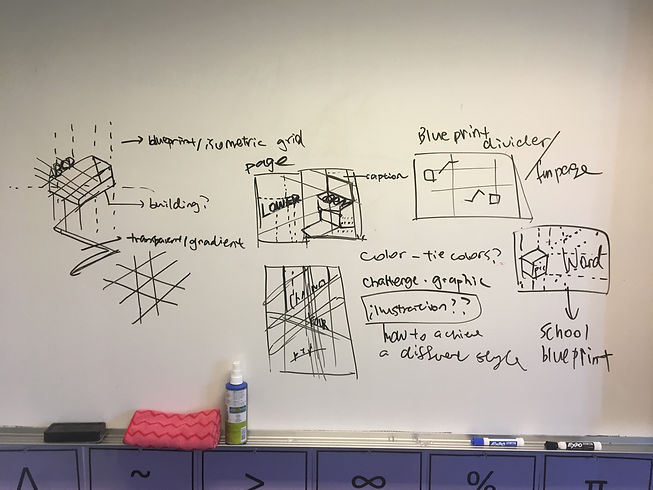 → blueprint/isometric grid
→ building?
transparent/gradient
page
LOWER
caption
Blueprint divider/
Color - tie colors?
challenge - graphic
illustration??
how to achieve
a different style
Word
school
blueprint
^
~
>
∞
%
π